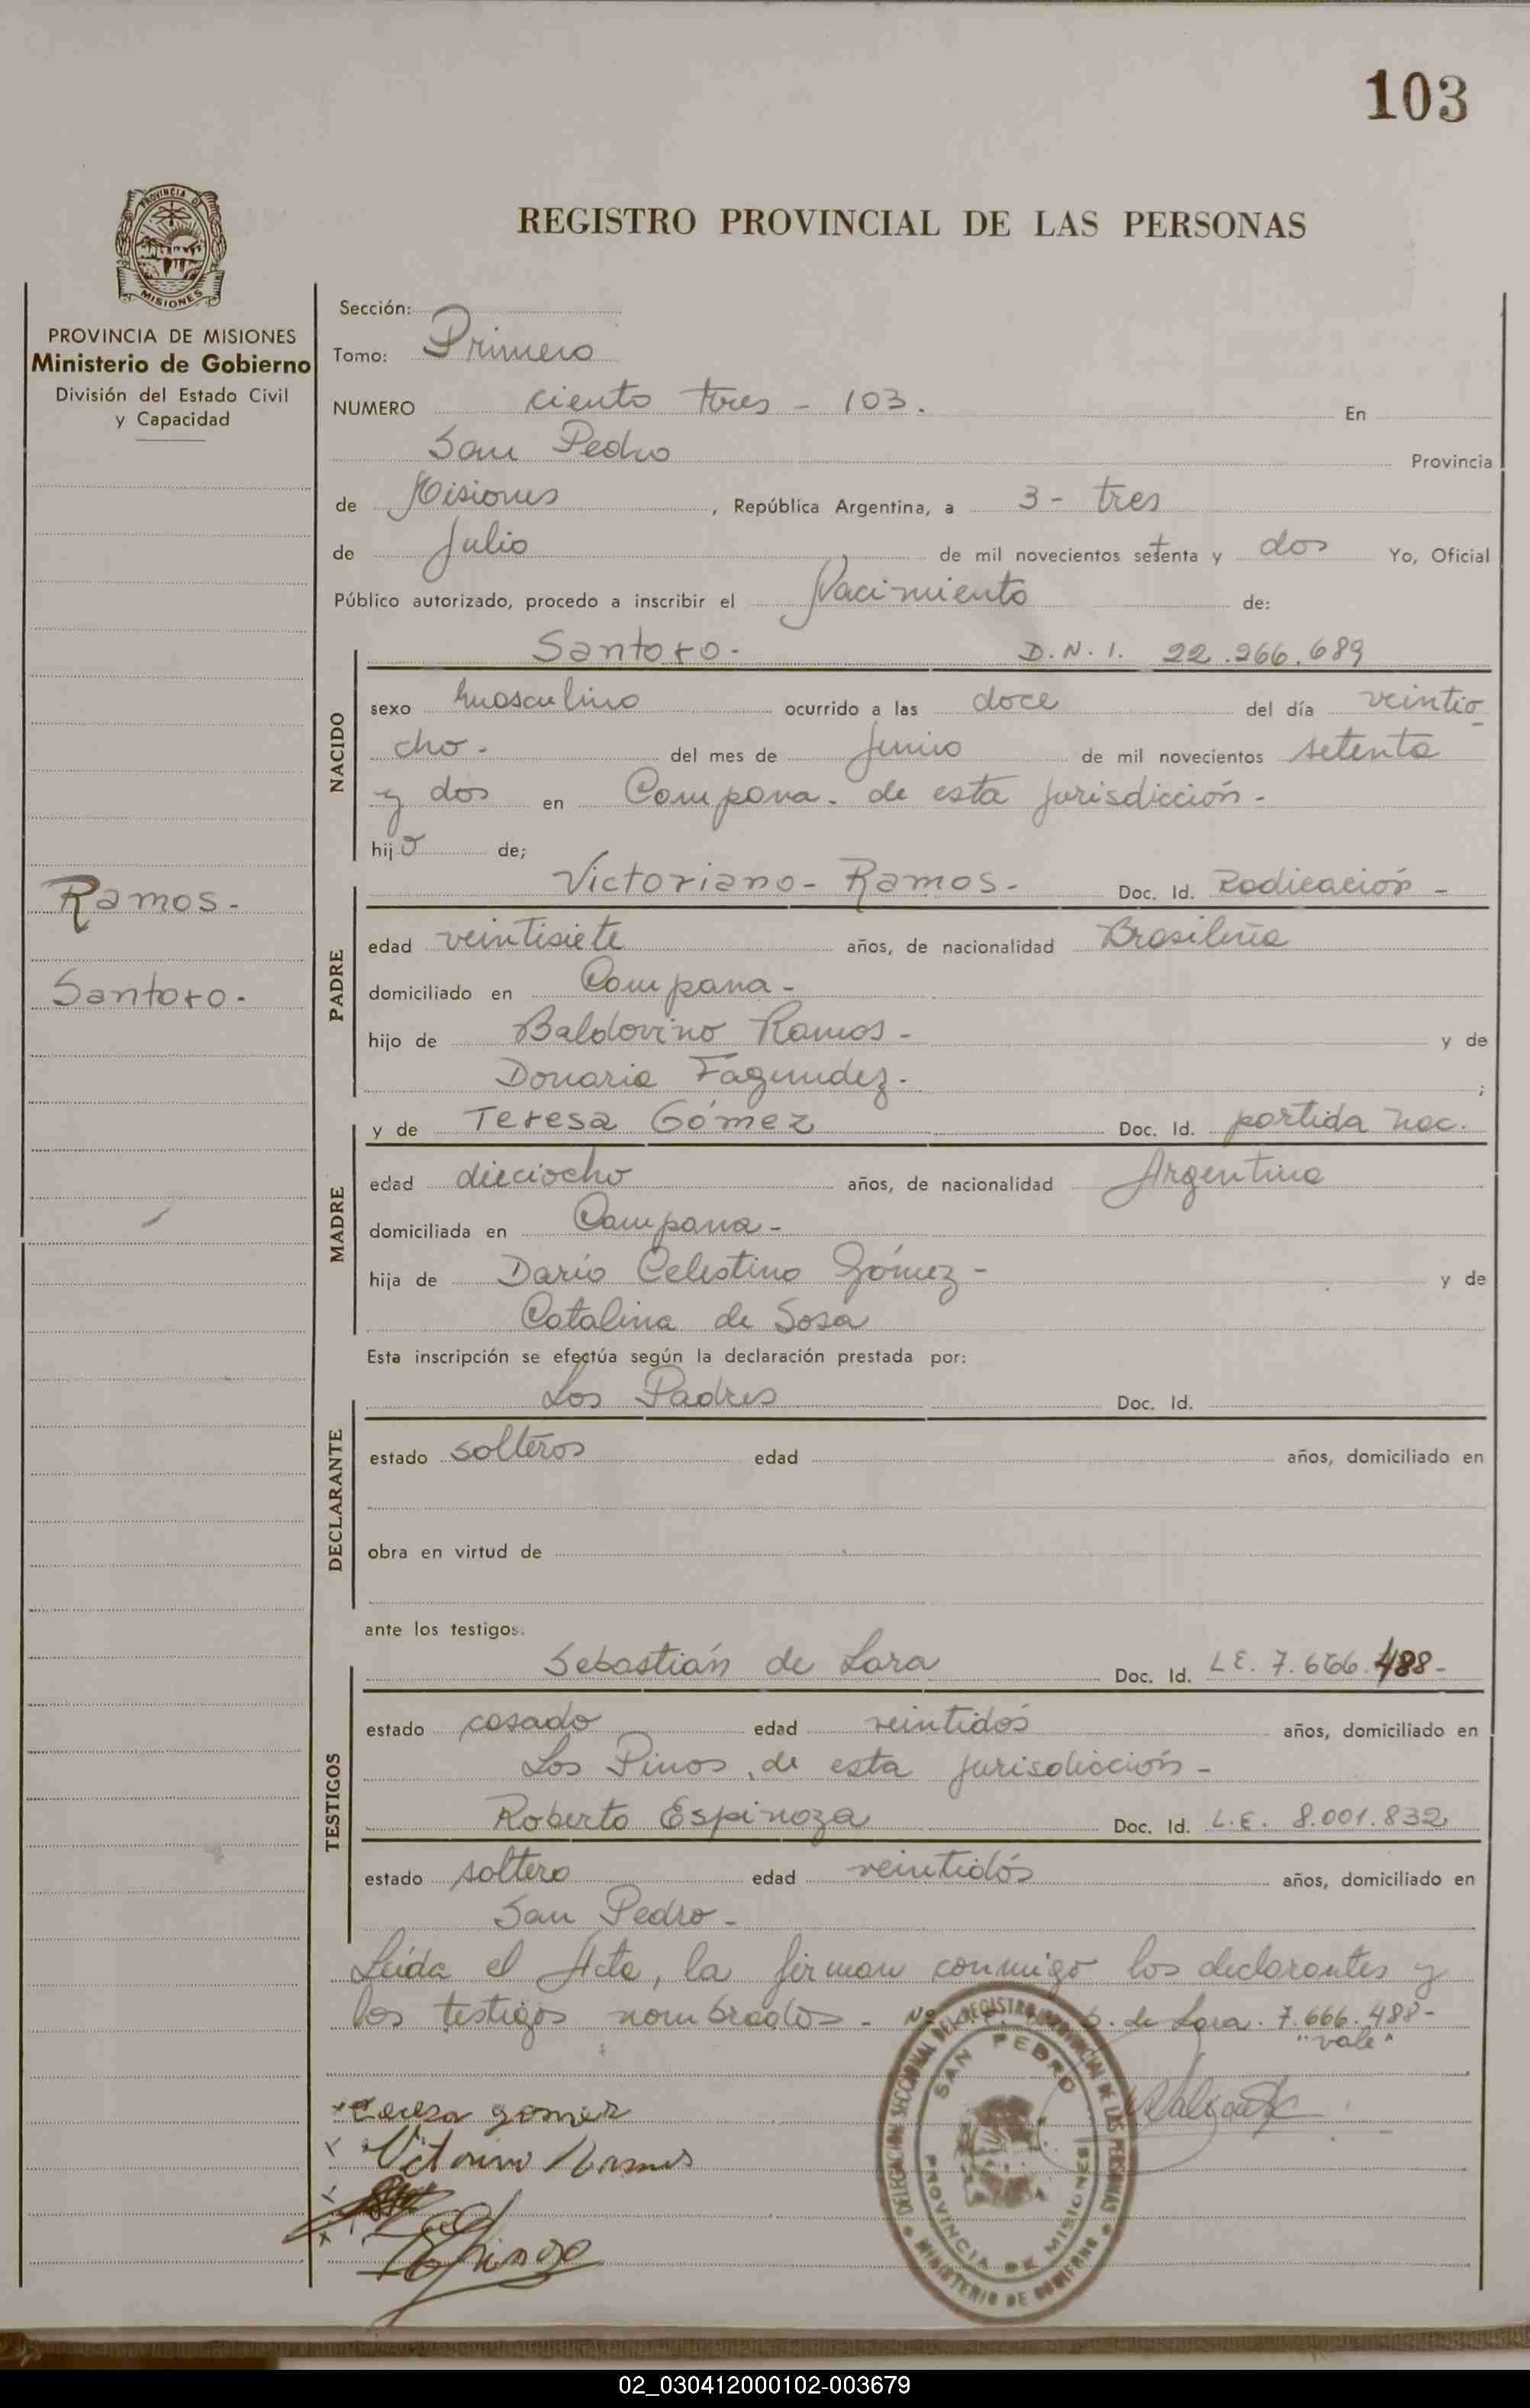 103
PROVINCIA DE
MISIONES
PROVINCIA DE MISIONES
Ministerio de Gobierno
División del Estado Civil
y Capacidad
Ramos-
Santoro-
REGISTRO PROVINCIAL DE LAS PERSONAS
Sección:
Tomo: Primero
NUMERO ciento tres - 103. En
San Pedro Provincia
de Misiones, República Argentina, a 3 - tres
de Julio de mil novecientos setenta y dos Yo, Oficial
Público autorizado, procedo a inscribir el Nacimiento de:
NACIDO
Santoro- D.N.I. 22.266.689
sexo masculino ocurrido a las doce del día veintio
cho- del mes de junio de mil novecientos setenta
y dos en Campana. de esta jurisdicción-
hijo de;
PADRE
Victoriano- Ramos- Doc. Id. Radicación-
edad veintisiete años, de nacionalidad Brasileña
domiciliado en Campana-
hijo de Baldovino Ramos- y de
Donaria Fagundez- ;
MADRE
y de Teresa Gómez Doc. Id. partida nac.
edad dieciocho años, de nacionalidad Argentina
domiciliada en Campana-
hija de Darío Celestino Gómez- y de
Catalina de Sosa
Esta inscripción se efectúa según la declaración prestada por:
DECLARANTE
Los Padres Doc. Id.
estado solteros edad años, domiciliado en
obra en virtud de
ante los testigos:
TESTIGOS
Sebastián de Lara Doc. Id. L.E. 7.666.488-
estado casado edad veintidós años, domiciliado en
Los Pinos, de esta jurisdicción-
Roberto Espinoza Doc. Id. L.E. 8.001.832
estado soltero edad veintidós años, domiciliado en
San Pedro-
Leída el Acta, la firman conmigo los declarantes y
los testigos nombrados- de Lara. 7.666.488-
"vale"
Teresa gomez
Victorino Ramos
Espinoza
DELEGACION SECCIONAL DEL REGISTRO PROVINCIAL DE LAS PERSONAS
MINISTERIO DE GOBIERNO
SAN PEDRO
PROVINCIA DE MISIONES
02_030412000102-003679